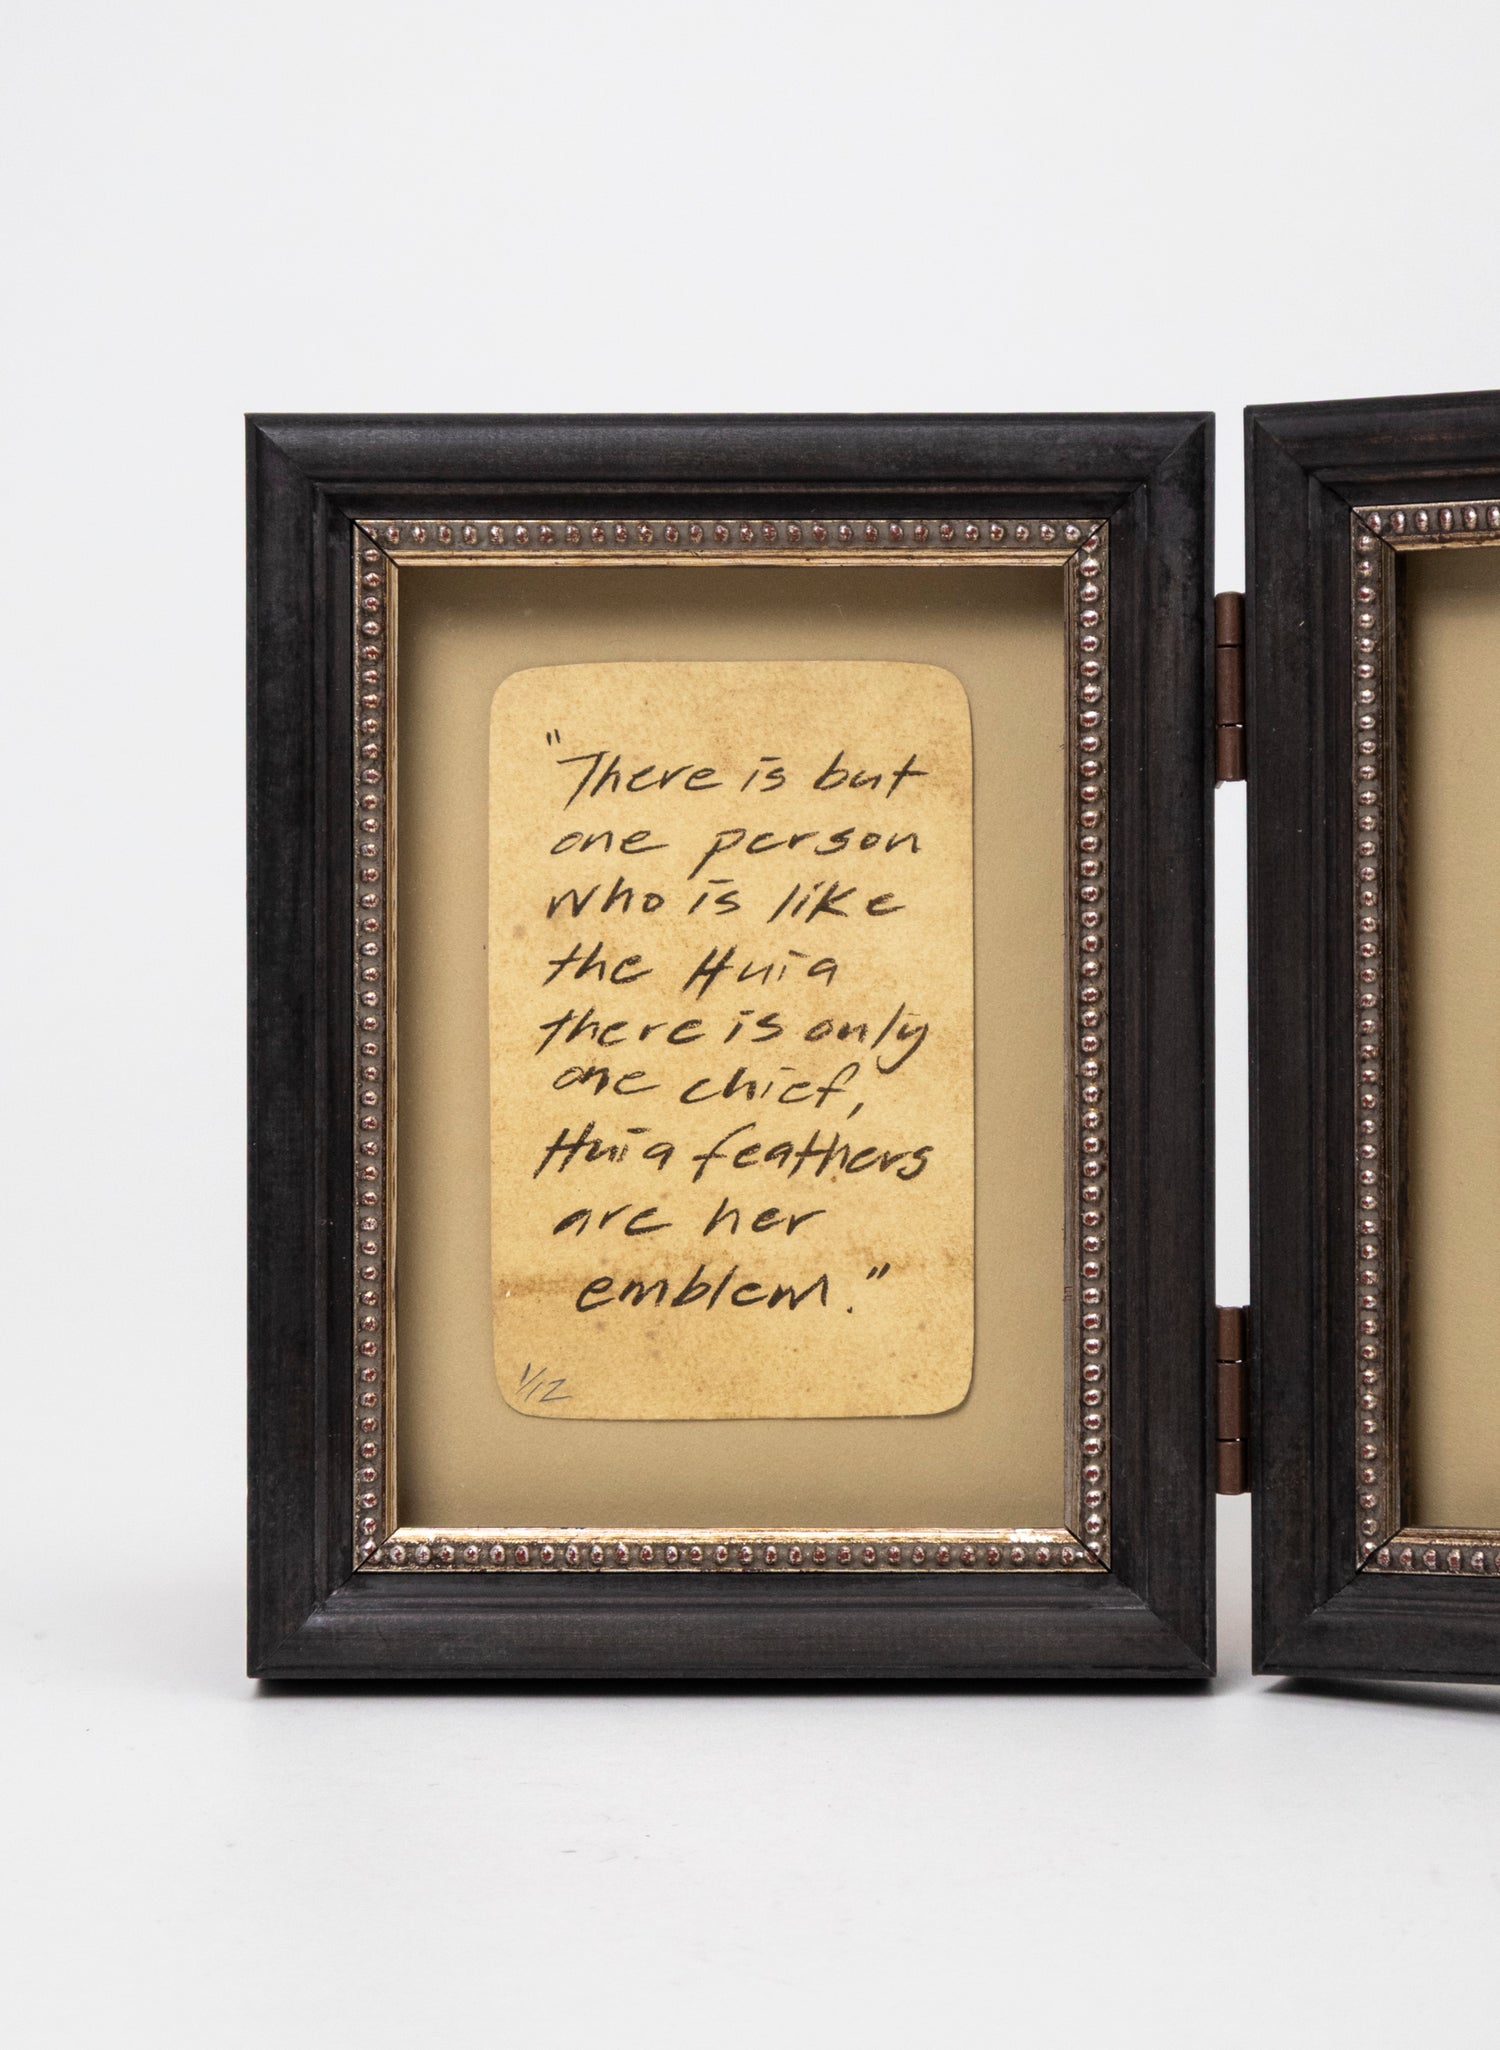 "There is but
one person
who is like
the Huia
there is only
one chief,
Huia feathers
are her
emblem."
1/12